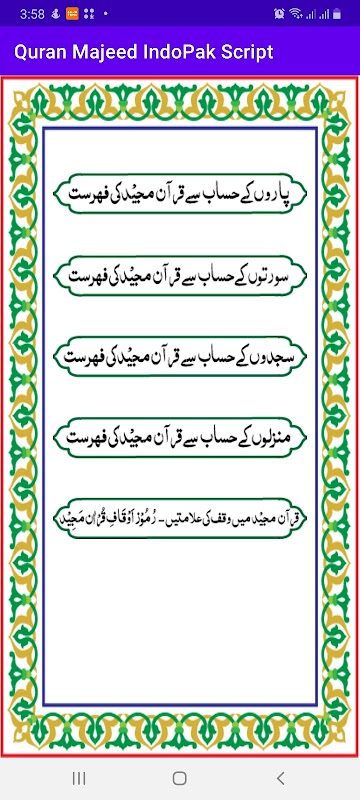 3:58
Quran Majeed IndoPak Script
پاروں کے حساب سے قرآن مجیْد کی فهرست
سورتوں کے حساب سے قرآن مجیْد کی فهرست
سجدوں کے حساب سے قرآن مجیْد کی فهرست
منزلوں کے حساب سے قرآن مجیْد کی فهرست
قرآن مجیْد میں وقف کی علامتیں۔ رُمُوْزِ اَوْقَافِ قُرْاٰن مَجِیْد